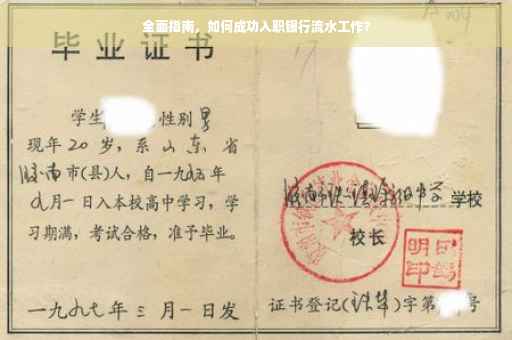 全面指南，如何成功入职银行流水工作?
毕业证书
学生 性别 男
现年 20 岁，系 山 东 省
济南市(县)人，自一九九五年
九月一日入本校高中学习，学
习期满，考试合格，准予毕业。
一九九七年三月一日发
学校
校长
证书登记( )字第 号